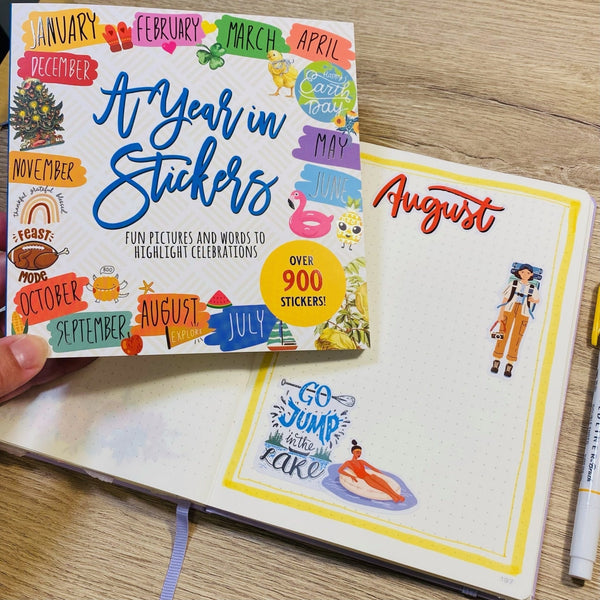 JANUARY
FEBRUARY
MARCH
APRIL
DECEMBER
Happy
Earth
Day
A Year in
Stickers
MAY
NOVEMBER
JUNE
thankful grateful blessed
FUN PICTURES AND WORDS TO
HIGHLIGHT CELEBRATIONS
FEAST
MODE
OVER
900
STICKERS!
BOO
OCTOBER
SEPTEMBER
AUGUST
EXPLORE
JULY
August
GO
JUMP
in the
LAKE